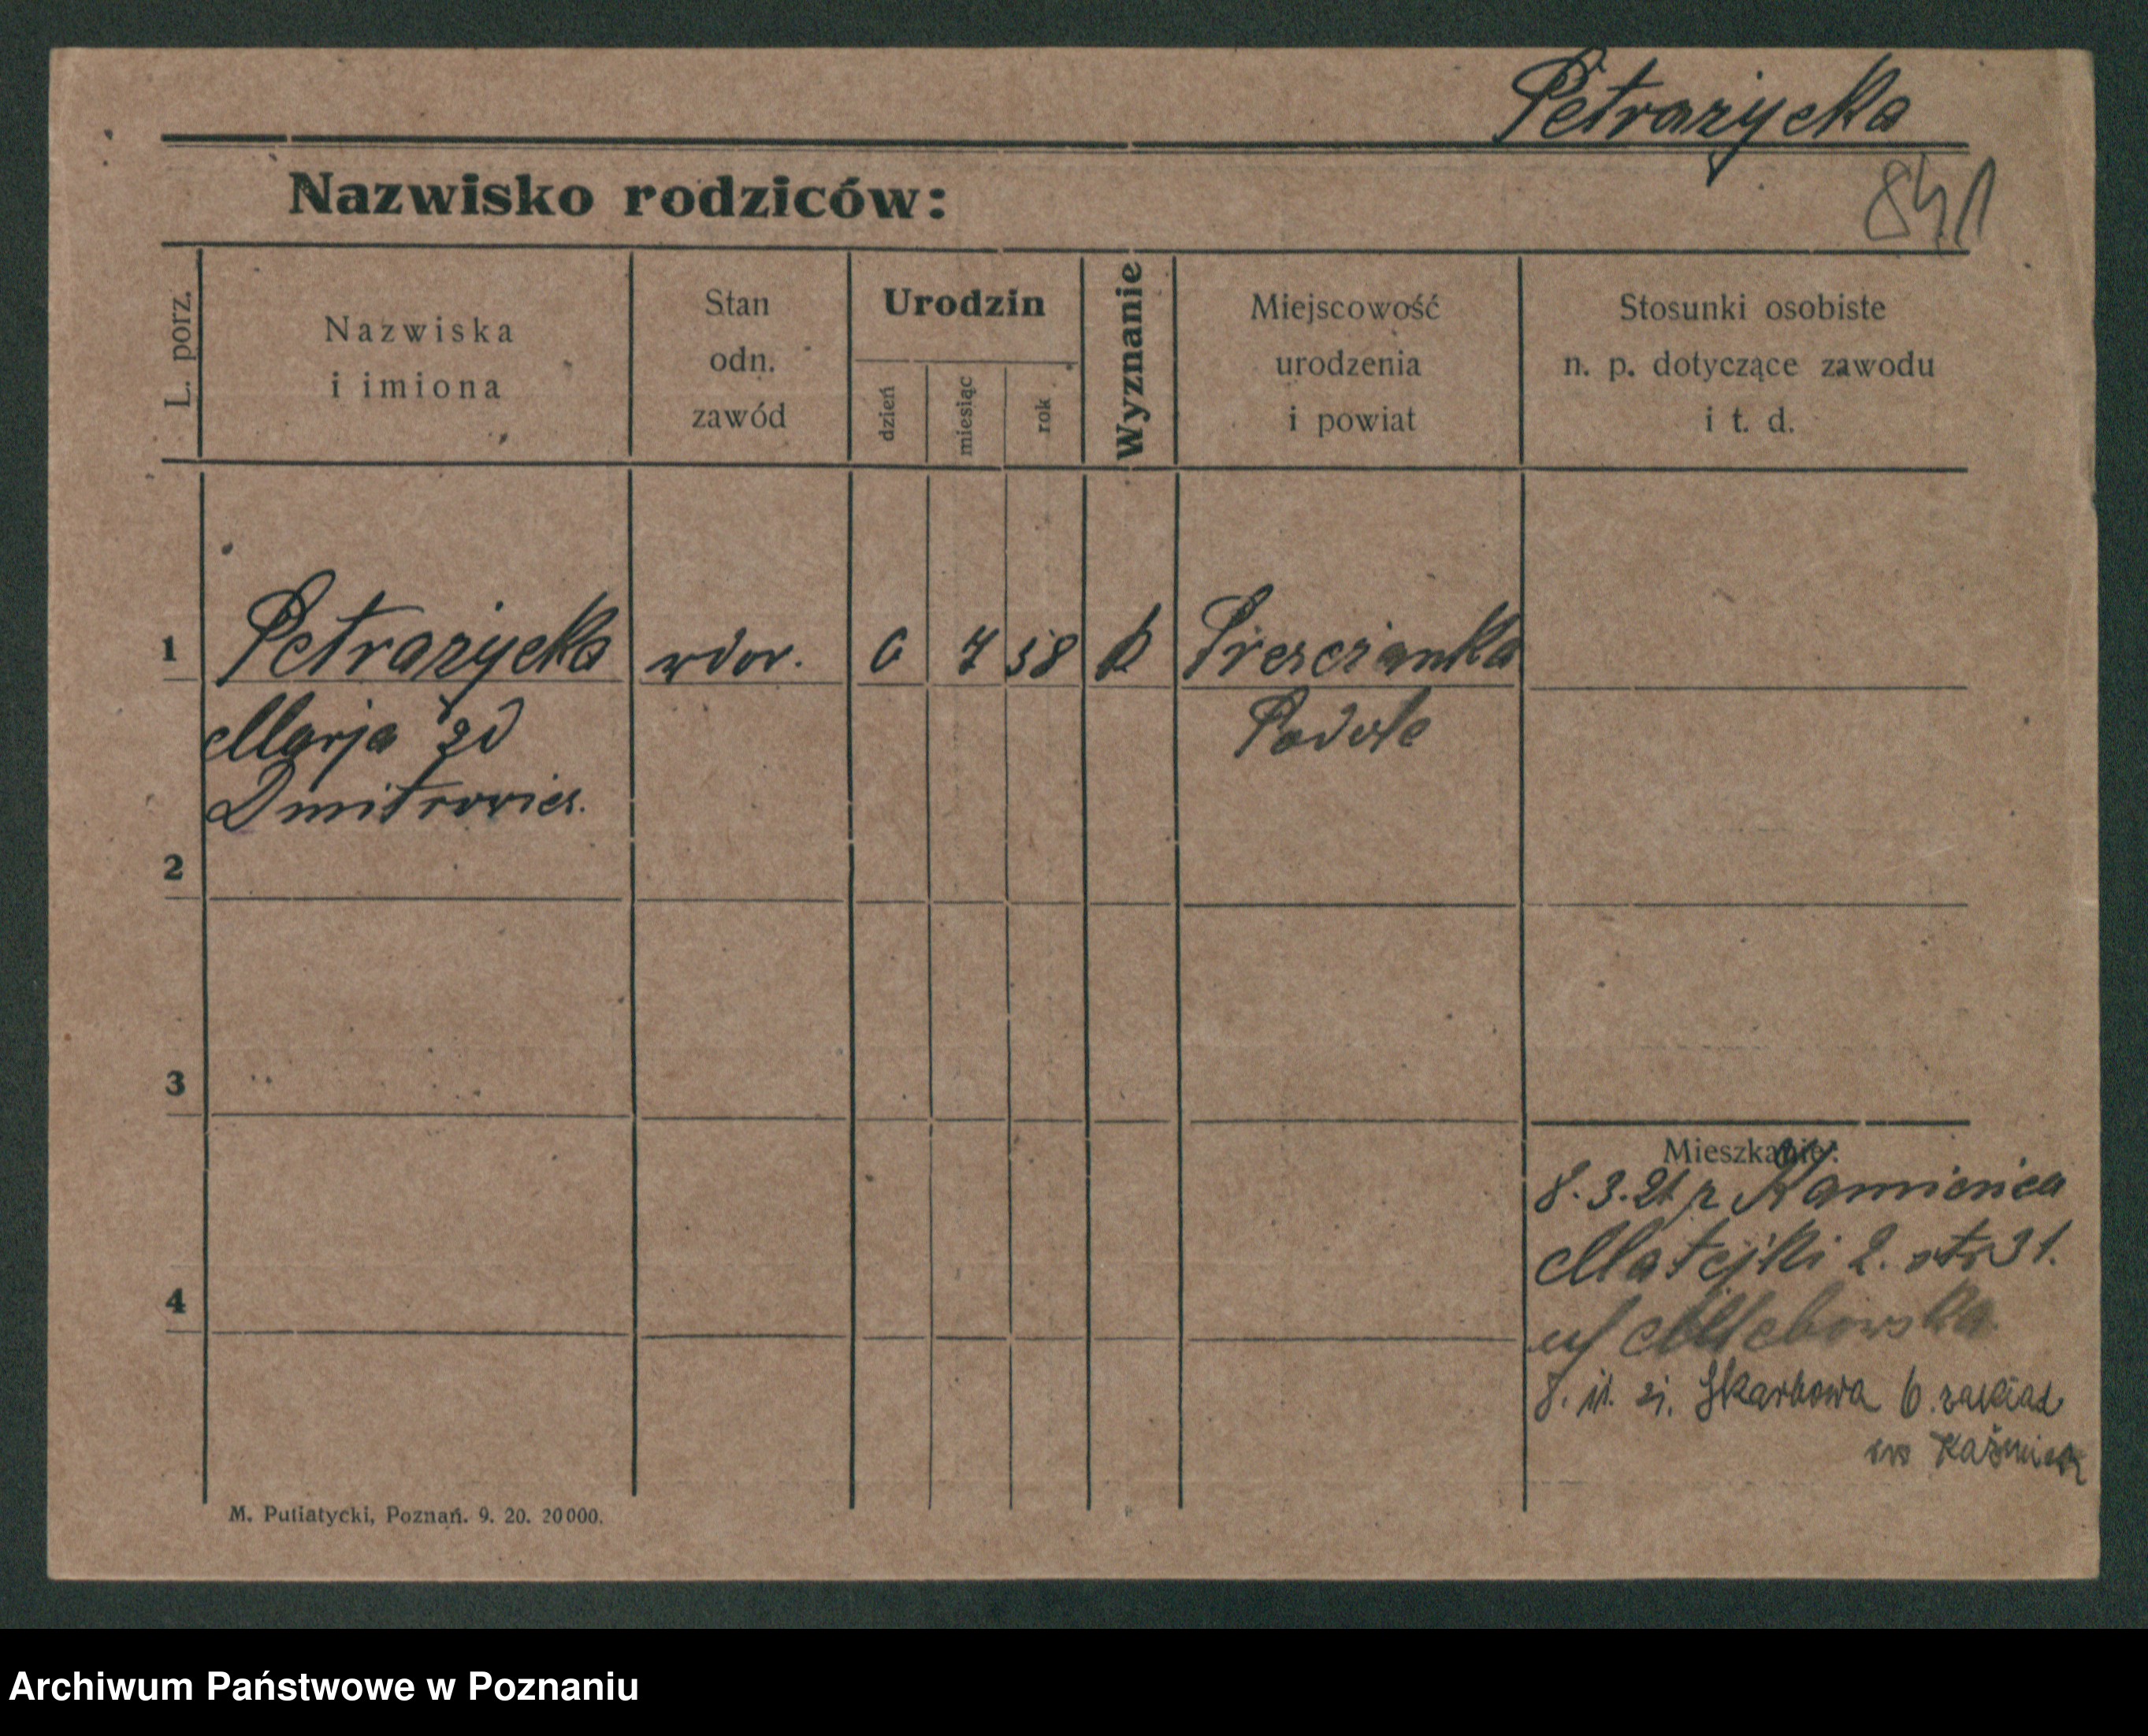 Petrażycka
841
Nazwisko rodziców:
L. porz.
Nazwiska
i imiona
Stan
odn.
zawód
Urodzin
dzień
miesiąc
rok
Wyznanie
Miejscowość
urodzenia
i powiat
Stosunki osobiste
n. p. dotyczące zawodu
i t. d.
1 Petrażycka wdow. 6 7 58 k
Marja zd Podole
Dmitrowicz.
2
3
Mieszkanie:
8.3.21 z Kamienica
Matejki 2. str 31.
4
8. 11. 21. Skarbowa 6.
M. Putiatycki, Poznań. 9. 20. 20000.
Archiwum Państwowe w Poznaniu